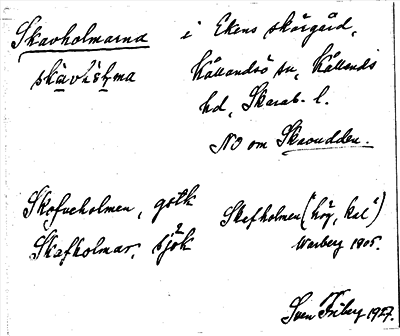 Skavholmarna i Ekens skärgård,
skavhòlma Kållandsö sn, Kållands
hd, Skarab. l.
NO om Skavudden.
Skofveholmen, gstk Skefholmen ("hög, kal")
Skafholmar, sjök Warberg 1905.
Sven Friberg 1927.